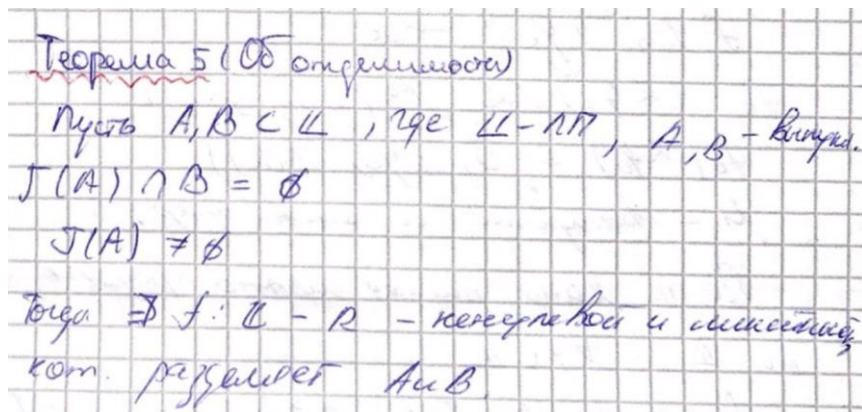 Теорема 5 (Об отделимости)
Пусть A, B ⊂ 𝕃, где 𝕃 - ЛП, A, B - выпукл.
J(A) ∩ B = ∅
J(A) ≠ ∅
Тогда ∃ f: 𝕃 - R - ненулевой и линейный,
кот. разделяет A и B.